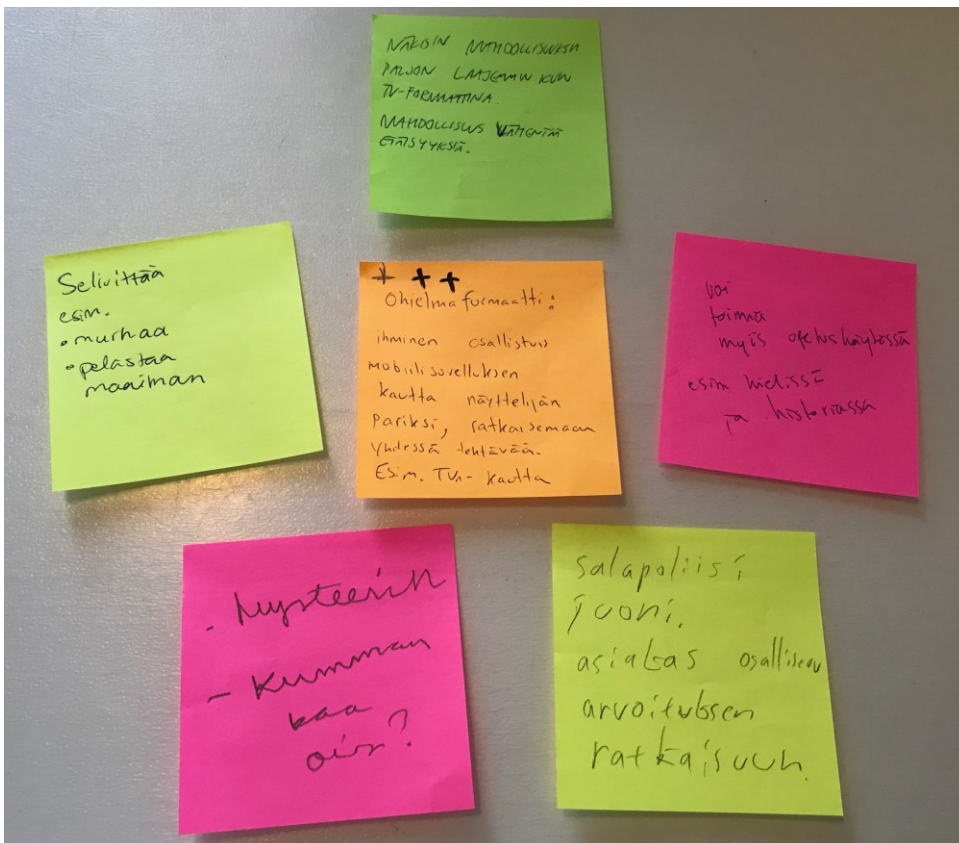 NÄKISIN MAHDOLLISUUKSIA
PALJON LAAJEMMIN KUIN
TV-FORMAATTINA.
MAHDOLLISUUS VÄHENTÄÄ
ETÄISYYKSIÄ.
Selivittää
esim.
• murhaa
• pelastaa
maailman
+ + +
Ohjelma formaatti:
ihminen osallistuu
mobiilisovelluksen
kautta näyttelijän
pariksi, ratkaisemaan
yhdessä tehtävää.
Esim. TV:n kautta
voi
toimia
myös opetuskäytössä
esim
ja historiassa
- Mysteerit
- Kumman
kaa
oisr?
salapoliisi
juoni.
asiakas osallisena
arvoituksen
ratkaisuun.